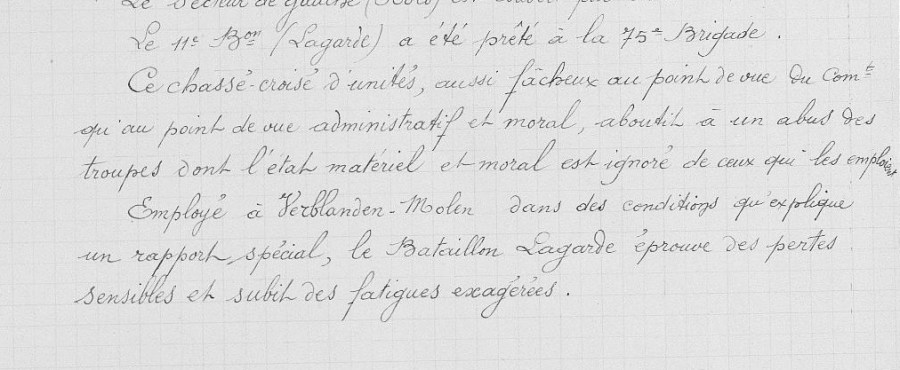 Le Secteur de Gauche
Le 11e Bon (Lagarde) a été prêté à la 75e Brigade.
Ce chassé-croisé d'unités, aussi fâcheux au point de vue du Comt
qu'au point de vue administratif et moral, aboutit à un abus des
troupes dont l'état matériel et moral est ignoré de ceux qui les emploient
Employé à Verblanden-Molen dans des conditions qu'explique
un rapport spécial, le Bataillon Lagarde éprouve des pertes
sensibles et subit des fatigues exagérées.